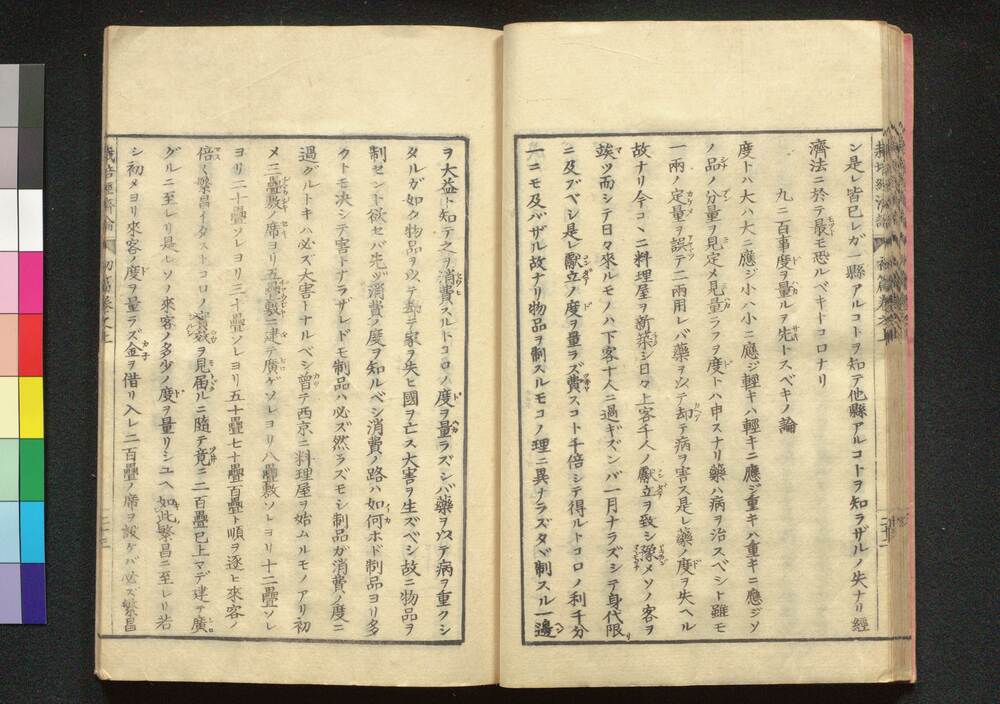 ン是レ皆已レガ一縣アルコトヲ知テ他縣アルコトヲ知ラザルノ失ナリ經
濟法ニ於テ最モ恐ルベキトコロナリ
九ニ百事度ヲ量ルヲ先トスベキノ論
度トハ大ハ大ニ應ジ小ハ小ニ應ジ輕キハ輕キニ應ジ重キハ重キニ應ジソ
ノ品ノ分量ヲ見定メ見量ラヲ度トハ申スナリ藥ハ病ヲ治スベシト雖モ
一兩ノ定量ヲ誤テ二兩用レバ藥ヲ以テ却テ病ヲ害ス是レ藥ノ度ヲ失ヘル
故ナリ今コヽニ料理屋ヲ新築シ日々上客千人ノ獻立ヲ致シ豫メソノ客ヲ
竢ツ而シテ日々來ルモノハ下客十人ニ過ギズンバ一月ナラズシテ身代限リ
ニ及ブベシ是レ獻立ノ度ヲ量ラズ費スコト千倍シテ得ルトコロノ利千分
一ニモ及バザル故ナリ物品ヲ制スルモコノ理ニ異ナラズタヾ制スル一邊
ヲ大益ト知テ之ヲ消費スルトコロノ度ヲ量ラズンバ藥ヲ以テ病ヲ重クシ
タルガ如ク物品ヲ以テ却テ家ヲ失ヒ國ヲ亡ス大害ヲ生ズベシ故ニ物品ヲ
制セント欲セバ先ヅ消費ノ度ヲ知ルベシ消費ノ路ハ如何ホド制品ヨリ多
クトモ决シテ害トナラザレドモ制品ハ必ズ然ラズモシ制品ガ消費ノ度ニ
過グルトキハ必ズ大害トナルベシ曾テ西京ニ料理屋ヲ始ムルモノアリ初
メ三疊敷ノ席ヨリ五疊敷ニ建テ廣ゲソレヨリ八疊敷ソレヨリ十二疊ソレ
ヨリ二十疊ソレヨリ三十疊ソレヨリ五十疊七十疊百疊ト順ヲ逐ヒ來客ノ
倍々繁昌イタストコロノ實效ヲ見届ルニ隨テ竟ニ二百疊已上マデ建テ廣
グルニ至レリ是レソノ來客ノ多少ノ度ヲ量リシユヘ如此繁昌ニ至レリ若
シ初メヨリ來客ノ度ヲ量ラズ金ヲ借リ入レ二百疊ノ席ヲ設ケバ必ズ繁昌